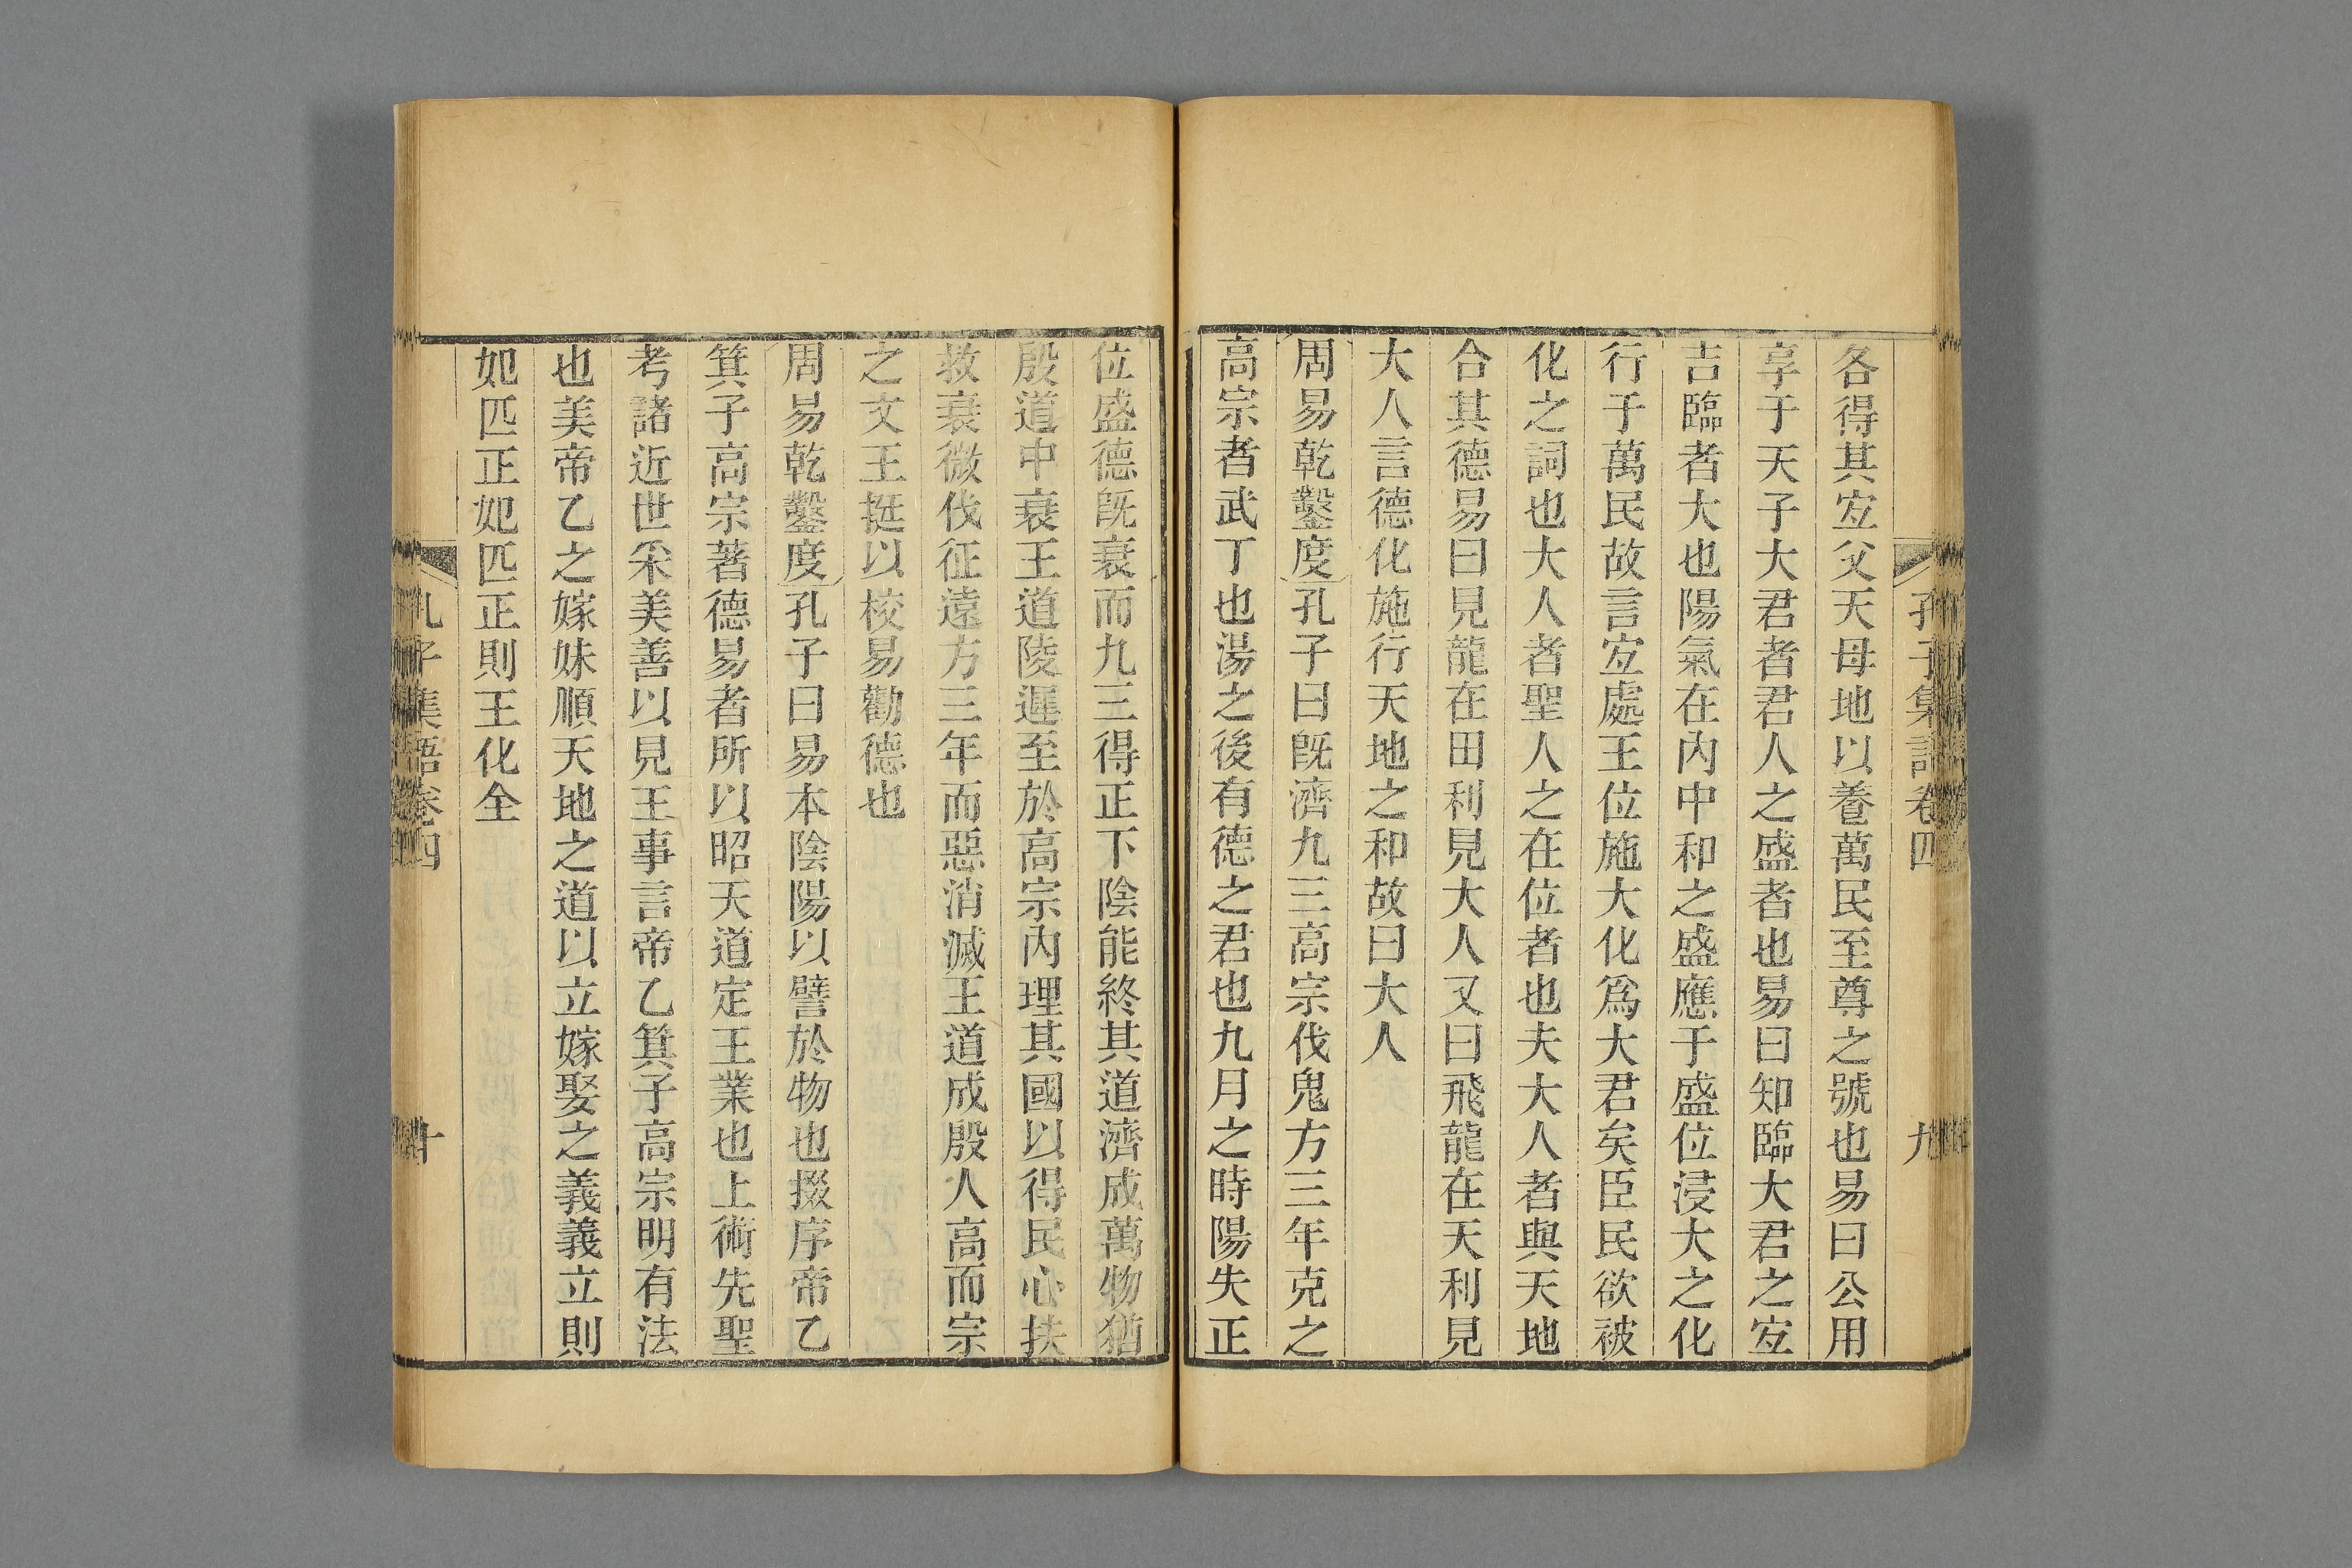 孔子集語卷四 九
各得其宐父天母地以養萬民至尊之號也易曰公用
享于天子大君者君人之盛者也易曰知臨大君之宐
吉臨者大也陽氣在內中和之盛應于盛位浸大之化
行于萬民故言宐處王位施大化爲大君矣臣民欲被
化之詞也大人者聖人之在位者也夫大人者與天地
合其德易曰見龍在田利見大人又曰飛龍在天利見
大人言德化施行天地之和故曰大人
周易乾鑿度孔子曰旣濟九三高宗伐鬼方三年克之
高宗者武丁也湯之後有德之君也九月之時陽失正
位盛德旣衰而九三得正下陰能終其道濟成萬物猶
殷道中衰王道陵遲至於高宗內理其國以得民心扶
救衰微伐征遠方三年而惡消滅王道成殷人高而宗
之文王挺以校易勸德也
周易乾鑿度孔子曰易本陰陽以譬於物也掇序帝乙
箕子高宗著德易者所以昭天道定王業也上術先聖
考諸近世采美善以見王事言帝乙箕子高宗明有法
也美帝乙之嫁妹順天地之道以立嫁娶之義義立則
妃匹正妃匹正則王化全
孔子集語卷四 十